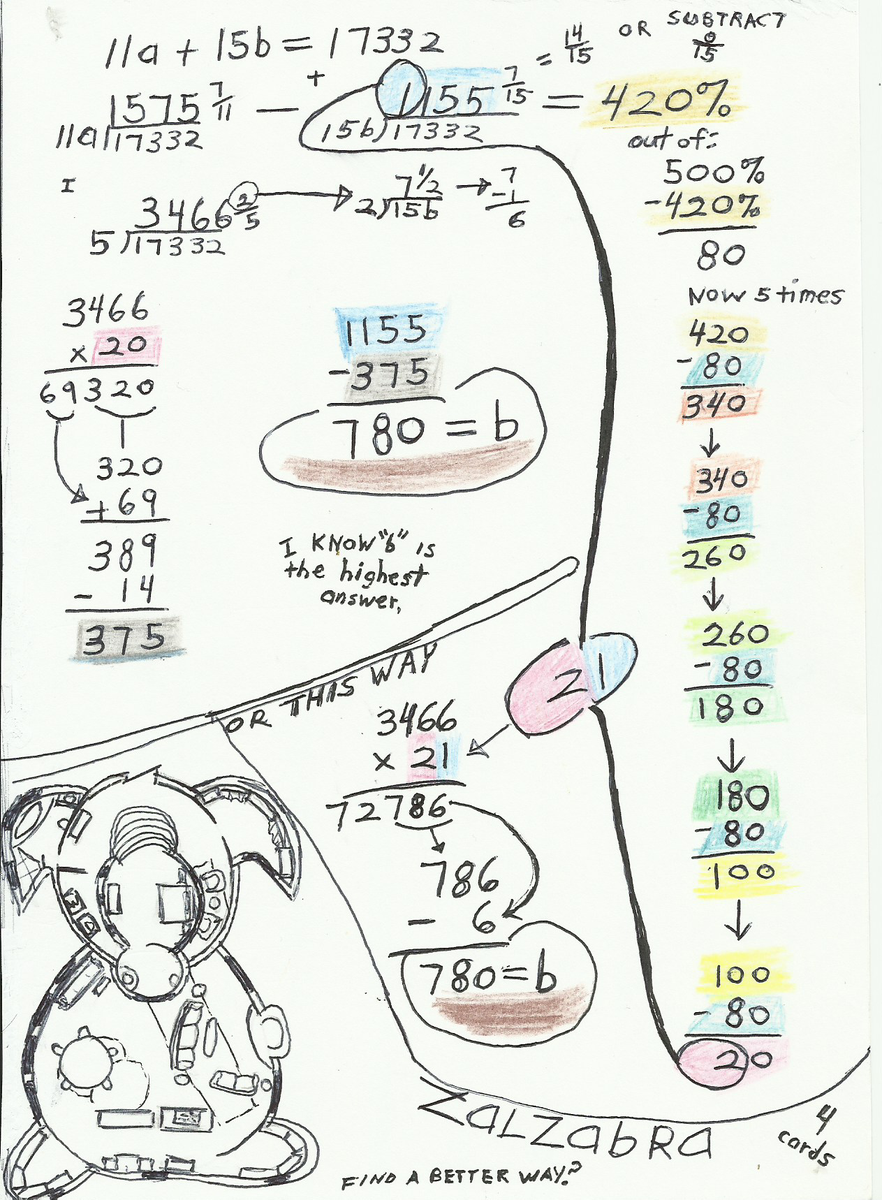 11a + 15b = 17332
OR SUBTRACT
= 14/15
0/15
1575 7/11 — + 1155 7/15 = 420%
11a)17332
15b)17332
out of:
500%
-420%
80
I
3466 2/5
5)17332
7 1/2
2)15b
7
-1
6
Now 5 times
3466
x 20
69320
320
+69
389
- 14
375
1155
-375
780 = b
I KNOW "b" is
the highest
answer,
420
-80
340
340
-80
260
260
-80
180
180
-80
100
100
-80
20
OR THIS WAY
21
3466
x 21
72786
786
- 6
780=b
ZALZabRA
4
cards
FIND A BETTER WAY?